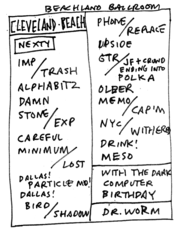 BEACHLAND BALLROOM
CLEVELAND-BEACH
NEXTY
IMP/TRASH
ALPHABITZ
DAMN
STONE/EXP
CAREFUL
MINIMUM/LOST
DALLAS!
PARTICLE MO!
DALLAS!
BIRD/SHADOW
PHONE/REPLACE
UPSIDE
GTR/JF+CROWD
ENDING INTO
POLKA
OLDER
MEMO/CAP'M
NYC/WITHERED
DRINK!
MESO
WITH THE DARK
COMPUTER
BIRTHDAY
DR. WORM